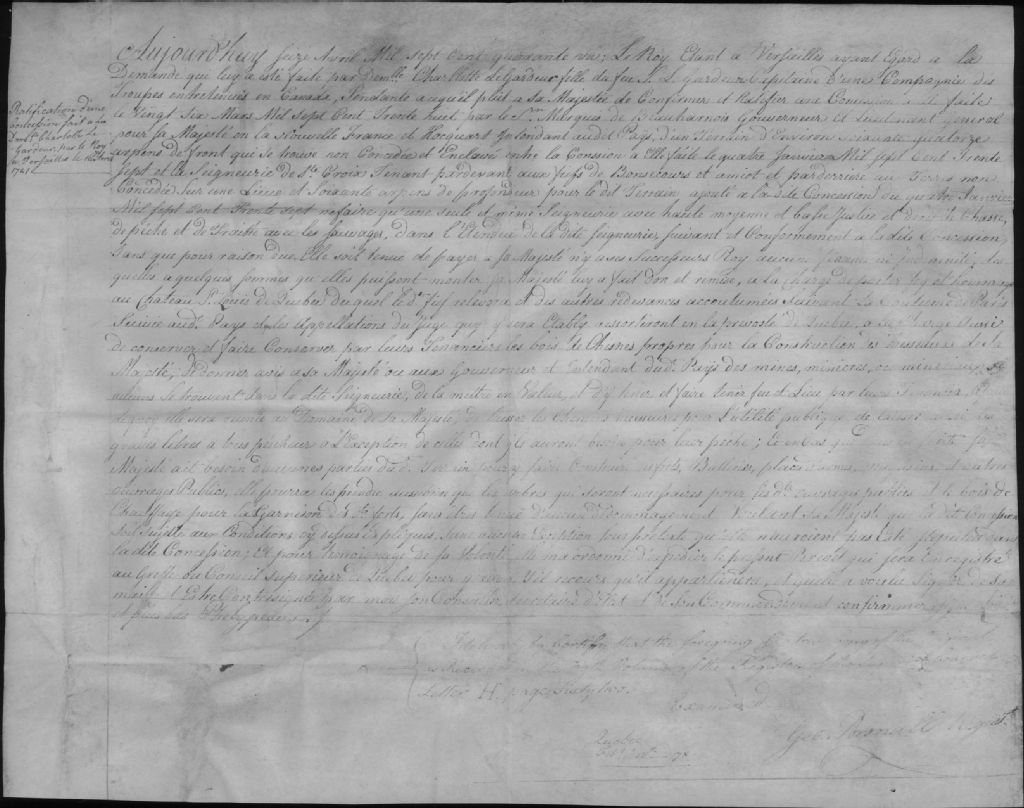 Aujourd'huy seize Avril Mil sept Cent quarante un; Le Roy Etant a Versailles ayant Egard a la
Demande qui luy a esté faite par Demlle Charlotte LeGardeur fille du feu S. L. Gardeur Capitaine d'une Compagnie des
Troupes entretenües en Canada, Tendante a ce qu'il plut a sa Majesté de Confirmer et Ratifier une Concession a elle faite
le Vingt Six Mars Mil sept Cent Trente huit par le Sr. Marquis de Beauharnois Gouverneur et Lieutenant General
pour sa Majesté en la Nouvelle France et Hocquart Intendant audit Pays, d'un Terrein d'Environ soixante quatorze
arpens de front qui se trouve non Concedée et Enclavée entre la Conssion a Elle faite le quatre Janvier Mil sept Cent Trente
sept et la Seigneurie de Ste. Croix Tenant pardevant aux fiefs de Bonsecours et amiot et parderriere au Terres non
Concedés sur une Lieue et Soixante arpens de profondeur pour le dit Terrain ajouté a la dite Concession du quatre Janvier
Mil sept Cent Trente sept ne faire qu'une seule et même Seigneurie avec haute moyenne et basse Justice et droit de Chasse,
de pêche et de Traitte avec les sauvages, dans l'Etendue de la dite seigneurie suivant et Conformement a la dite Concession,
Sans que pour raison du Elle soit tenue de payer a sa Majesté ny a ses Successeurs Roy aucune finance ni indemnité, des
quelles a quelques sommes qu'elles puissent monter sa Majesté luy a fait Don et remise, a la charge de porter foy et hommage
au Château St. Louis de Quebec du quel le dt. fief relevera et des autres redevances accoutumées suivant La Coutume de Paris
Suivie audt. Pays des Appellations du Juge qui y sera Etably ressortiront en la prevosté de Quebec, a sa charge aussi
de conserver et faire Conserver par leurs Tenanciers les bois de Chesnes propres pour la Construction des vaisseaux de Sa
Majesté, de donner avis a sa Majesté ou aux Gouverneur et Intendant dudt. Pays des mines, minieres, ou mineraux, si
aucuns se trouvent dans la dite Seigneurie, de la mettre en Valeur, et d'y tenir et faire tenir feu et Lieu par leurs Tenanciers,
quoy elle sera reunie au Domaine de sa Majesté, de laisser les Chemins necessaires pour l'utilité publique de laisser aussi les
graves libres a tous pêcheurs a l'Exception de celles dont ils auront besoin pour leur pêche; et en Cas que dans la suite sa
Majesté ait besoin d'aucunes parties dudt. Terrein pour y faire Construire aucuns forts, Batteries, places d'armes, magasins et autres
ouvrages Publics, elle pourra les prendre aussi bien que les arbres qui seront necessaires pour les dts. ouvrages publics et le bois de
Chauffage pour la Garnison des dts. forts, sans être tenue d'aucun dédommagement. Voulant Sa Majesté que la dit Concession
soit Sujette aux Conditions cy dessus Expliquées, sans aucune Exception sous pretexte qu'elle n'auroient pas Eté stipulées dans
la dite Concession; Et pour Temoignage de sa Volonté, Elle m'a ordonné d'expedier le present Brevet qui sera Enregistré
au Greffe du Conseil Superieur de Quebec pour y avoir recours qu'il appartiendra, et qu'elle a voulu signer de Sa
main et Etre Contresigné par moi son Conseiller secretaire d'Etat et de ses Commandements
Ratification d'une
concession fait a la
Damlle Charlotte Le
Gardeur, par le Roy
a Versailles le 16 Avril
1741
I do hereby Certify that the foregoing is a true copy of the original
as Recorded in the Volume of the Register of the
Letter H. page Sixty two.
Examined
Geo: Pownall
Quebec